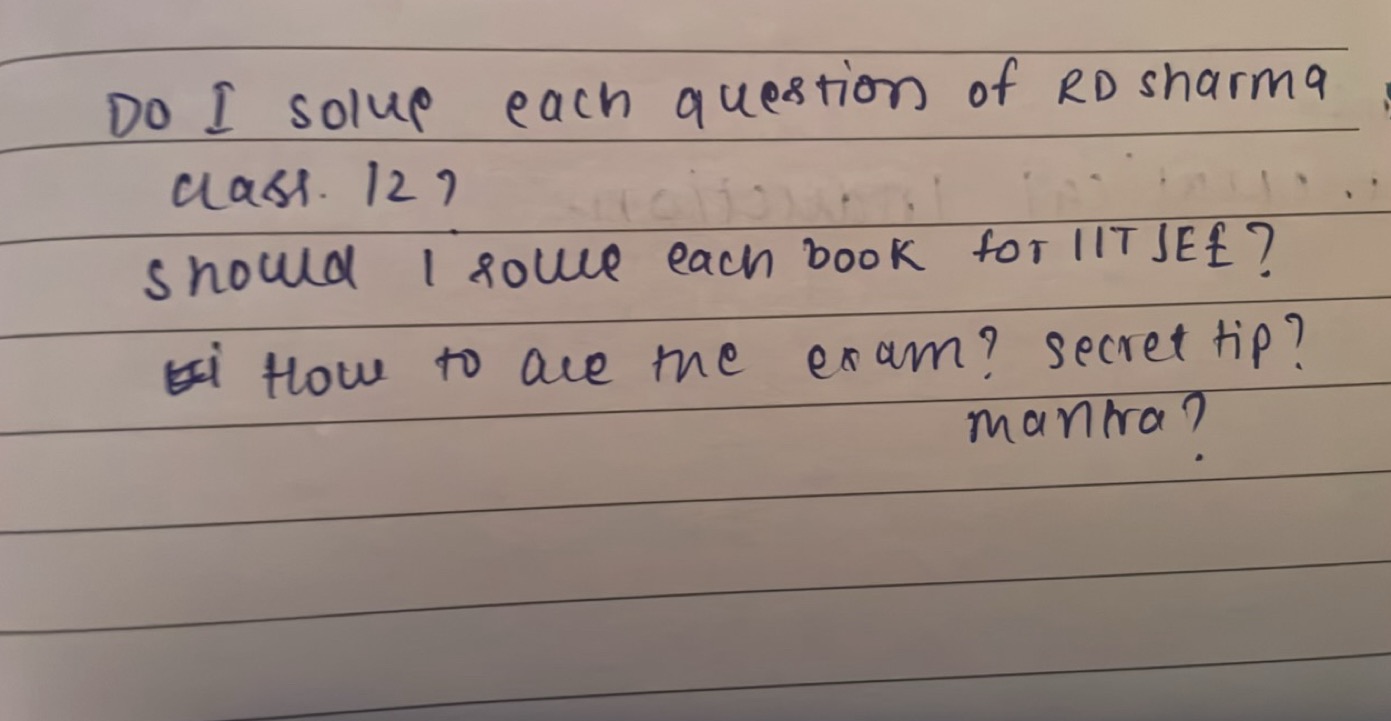 Do I solve each question of RD sharma
class. 12?
should I solve each book for IIT JEE?
How to ace the exam? secret tip?
mantra?